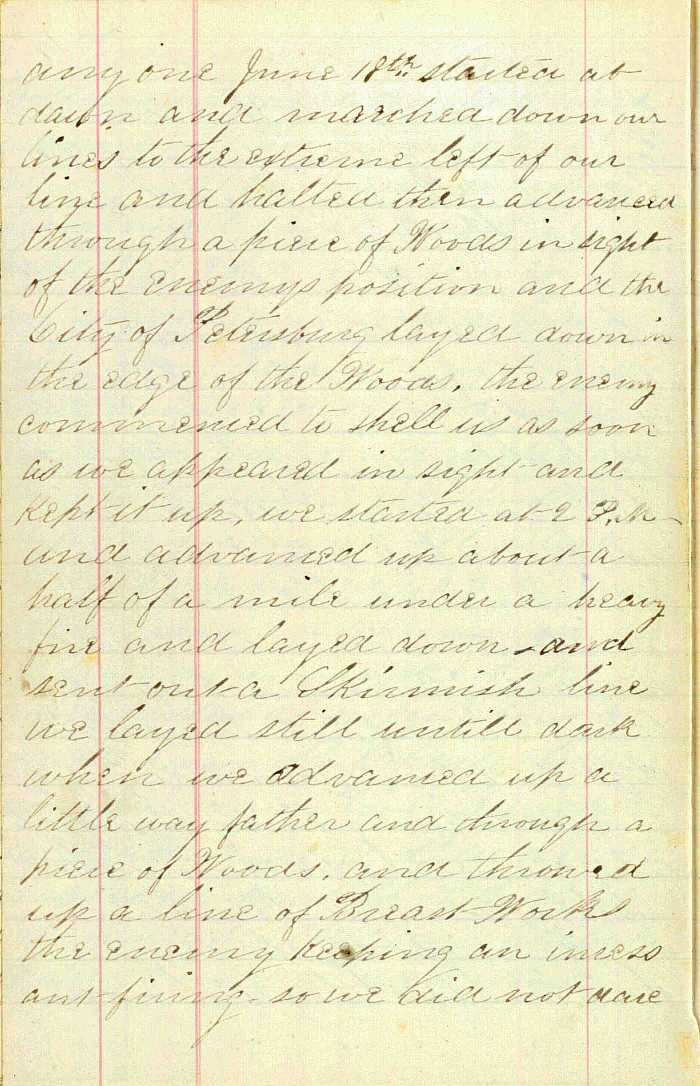 any one June 18th started at
dawn and marched down our
lines to the extreme left of our
line and halted then advanced
through a piece of Woods in sight
of the enemys position and the
City of Petersburg layed down in
the edge of the Woods. the enemy
commenced to shell us as soon
as we appeared in sight and
kept it up. we started at 2 P.M
and advanced up about a
half of a mile under a heavy
fire and layed down and
sent out a Skirmish line
we layed still untill dark
when we advanced up a
little way father and through a
piece of Woods. and throwed
up a line of Breast Works
the enemy keeping an incess
ant firing. so we did not dare